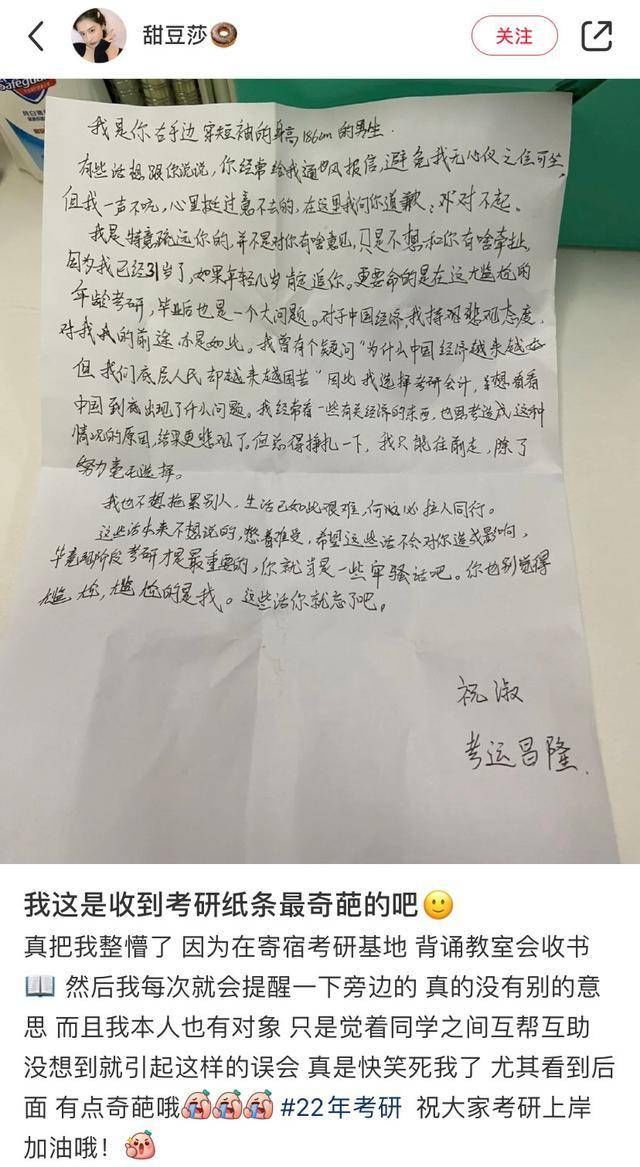 甜豆莎
关注
Safeguard
我是你右手边穿短袖的身高186cm的男生.
有些话想跟你说说，你经常给我通风报信，避免我无位可坐,
但我一声不吭，心里挺过意不去的，在这里我向你道歉、对不起。
我是特意疏远你的，并不是对你有啥意见，只是不想和你有啥牵扯，
因为我已经31岁了，如果年轻几岁肯定追你。更要命的是在这尴尬的
年龄考研，毕业后也是一个大问题。对于中国经济，我持悲观态度，
对我的前途亦是如此。我曾有个疑问“为什么中国经济越来越好
但我们底层人民却越来越困苦”因此我选择考研会计，想看看
中国到底出现了什么问题。我经常看一些有关经济的东西，也思考造成这种
情况的原因，结果更悲观了。但总得挣扎一下，我只能往前走，除了
努力毫无选择。
我也不想拖累别人，生活已如此艰难，何必拉人同行。
这些话本来不想说的，憋着难受，希望这些话不会对你造成影响，
毕竟现阶段考研才是最重要的，你就当是一些牢骚话吧。你也别觉得
尴尬，尴尬的是我。这些话你就忘了吧。
祝淑
考运昌隆.
我这是收到考研纸条最奇葩的吧🙂
真把我整懵了 因为在寄宿考研基地 背诵教室会收书
📖 然后我每次就会提醒一下旁边的 真的没有别的意
思 而且我本人也有对象 只是觉着同学之间互帮互助
没想到就引起这样的误会 真是快笑死我了 尤其看到后
面 有点奇葩哦 #22年考研 祝大家考研上岸
加油哦！